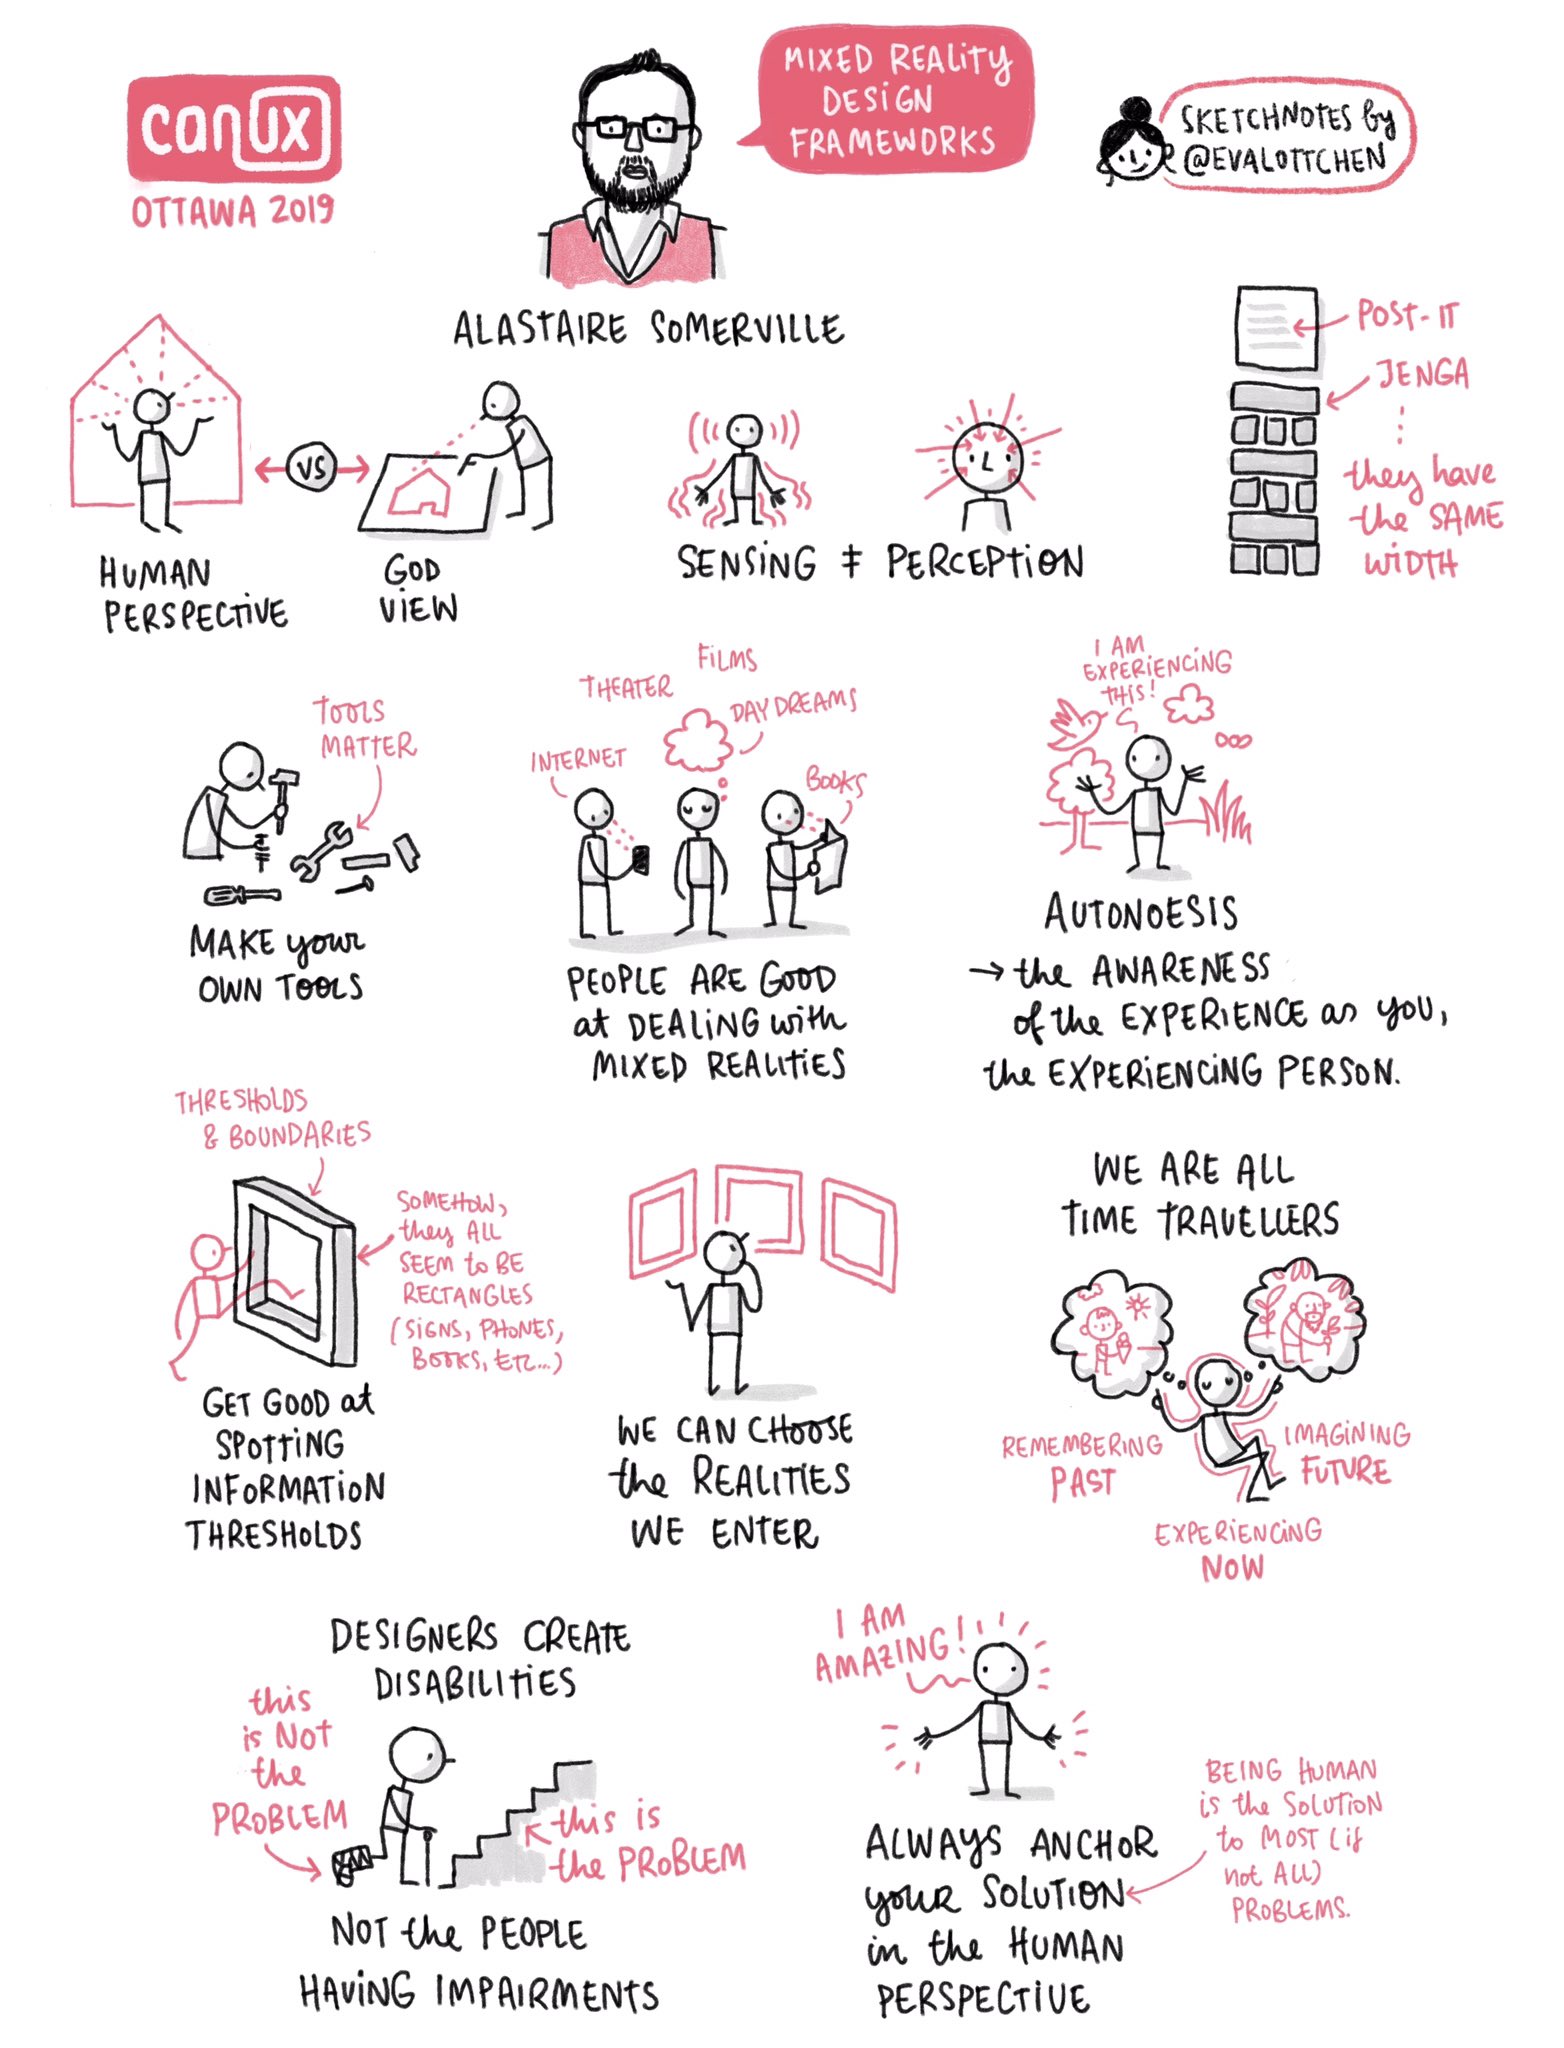 canux
OTTAWA 2019
MIXED REALITY
DESIGN
FRAMEWORKS
SKETCHNOTES by
@EVALOTTCHEN
ALASTAIRE SOMERVILLE
VS
HUMAN
PERSPECTIVE
GOD
VIEW
SENSING ≠ PERCEPTION
POST-IT
JENGA
they have
the SAME
WIDTH
TOOLS
MATTER
MAKE your
OWN TOOLS
INTERNET
THEATER
FILMS
DAYDREAMS
BOOKS
PEOPLE ARE GOOD
at DEALING with
MIXED REALITIES
I AM
EXPERIENCING
THIS!
AUTONOESIS
→ the AWARENESS
of the EXPERIENCE as YOU,
the EXPERIENCING PERSON.
THRESHOLDS
& BOUNDARIES
SOMEHOW,
they ALL
SEEM to BE
RECTANGLES
(SIGNS, PHONES,
BOOKS, ETC...)
GET GOOD at
SPOTTING
INFORMATION
THRESHOLDS
WE CAN CHOOSE
the REALITIES
WE ENTER
WE ARE ALL
TIME TRAVELLERS
REMEMBERING
PAST
IMAGINING
FUTURE
EXPERIENCING
NOW
DESIGNERS CREATE
DISABILITIES
this
is NOT
the
PROBLEM
this is
the PROBLEM
NOT the PEOPLE
HAVING IMPAIRMENTS
I AM
AMAZING!
ALWAYS ANCHOR
your SOLUTION
in the HUMAN
PERSPECTIVE
BEING HUMAN
is the SOLUTION
to MOST (if
not ALL)
PROBLEMS.